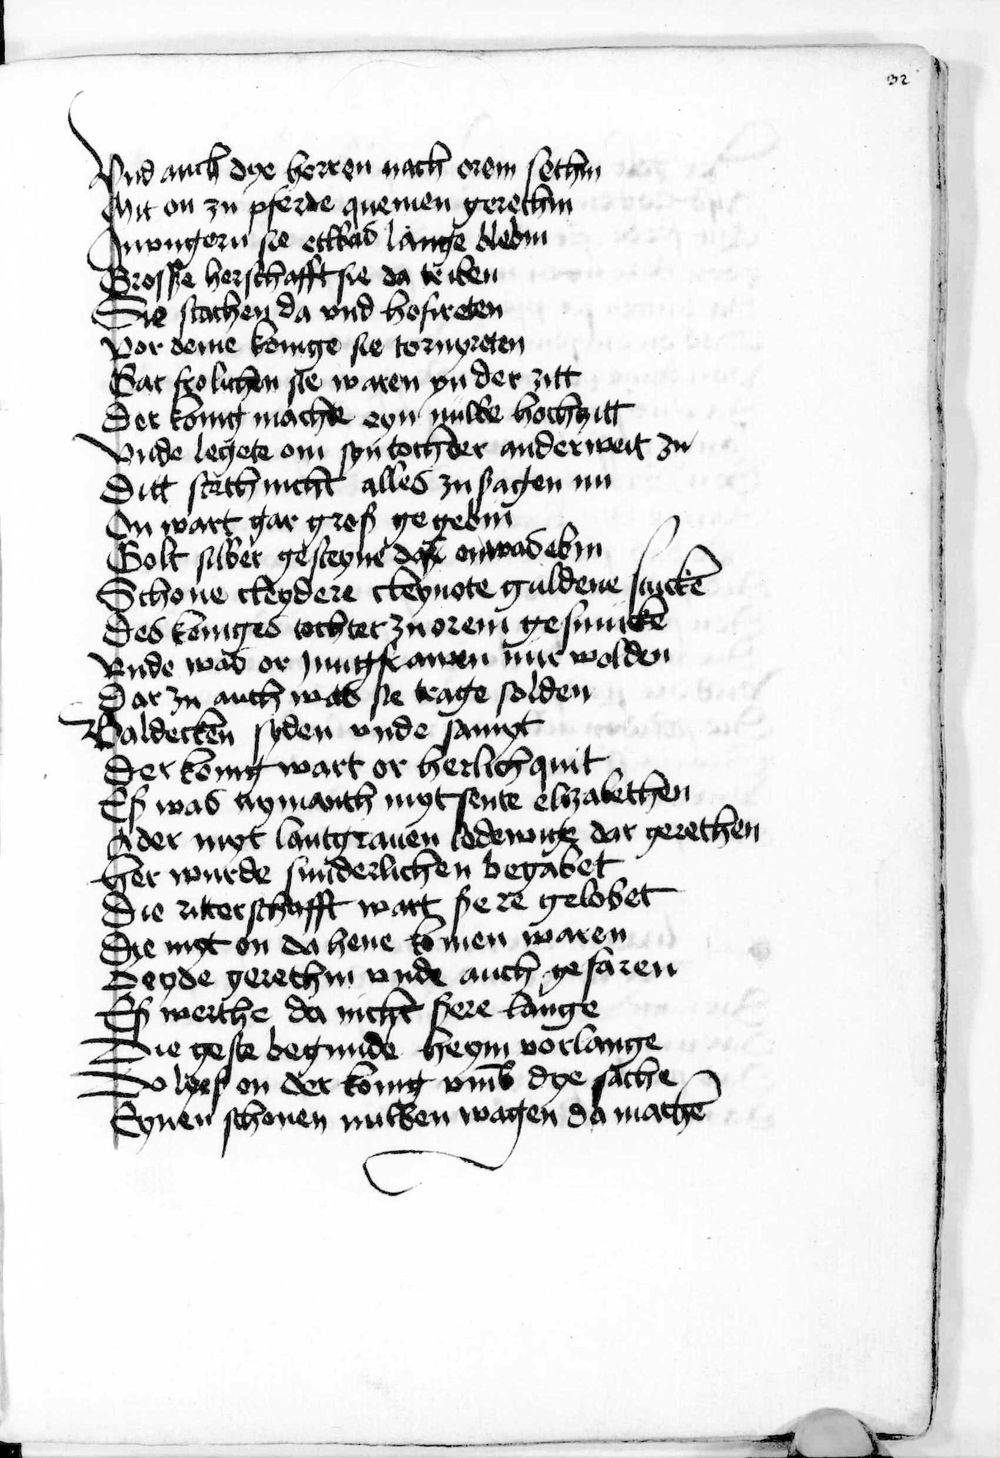 32
Vnd auch dye herren nach orem sethin
Mit on zu pferde quemen gerethin
In vngern sie etzwas lange blebin
Grosse herschafft sie da treiben
Die stachen da vnd hofireten
Vor deme konige sie tornyreten
Gar frolichen sie waren yn der zitt
Der konig machte eyn milde hochzitt
Vnde legete om syn tochter anderweit zu
Ditt steth nicht alles zu sagen nu
On wart gar groß gegebin
Golt silber gesteyne dar onwas ebin
Schone cleydere cleynote guldene stucke
Des koniges tochter zu orem gesmucke
Vnde was or Jungfrawen nur wolden
Dar zu auch was sie trage solden
Baldecken syden vnde sampt
Der konig wart or herlich quit
Eß was nymanth myt sente elizabethen
Ader myt lantgrauen lodewige dar gerethen
Her wurde sunderlichen begabet
Die ritterschafft wart sere gelobet
Dye myt on da hene komen waren
Beyde gerethin vnde auch gefaren
Eß werthe da nicht sere lange
Die geste begunde heym vorlange
Do lyeß on der konig vmb dye sache
Eynen schonen milden wagen da mache